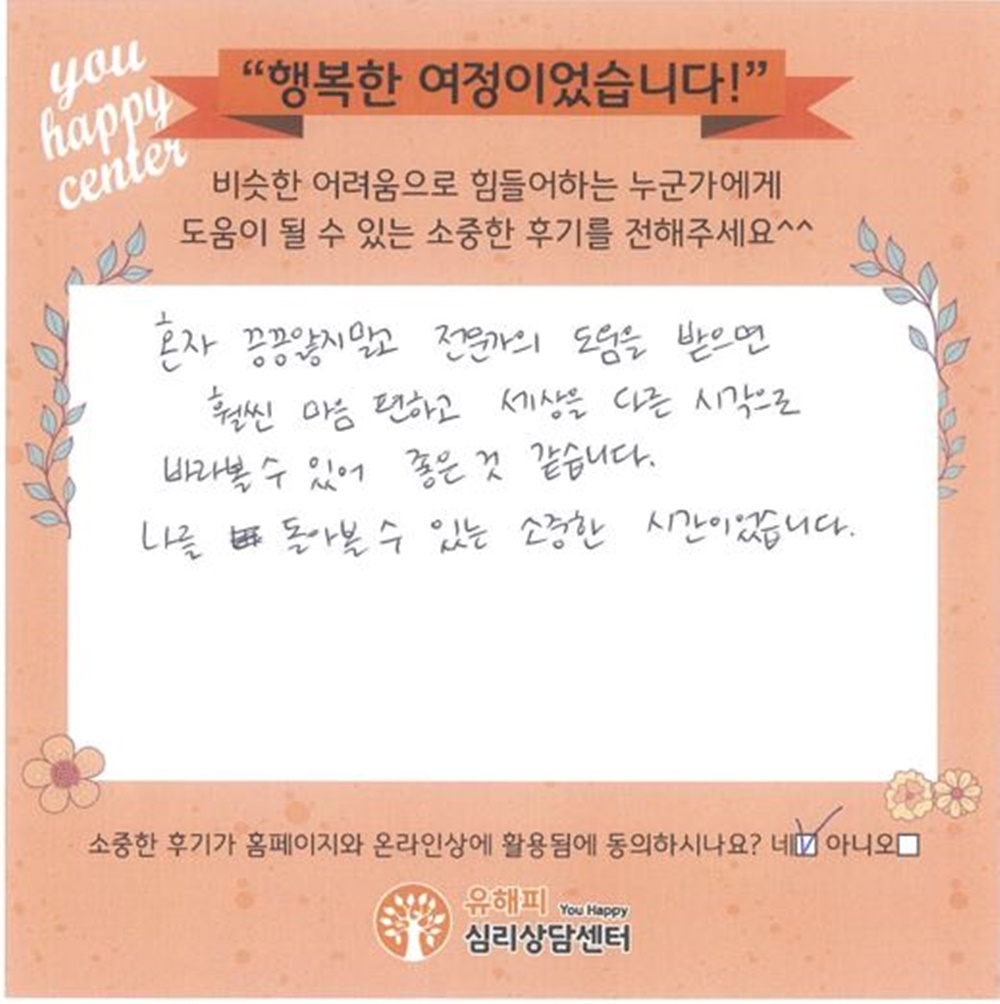 you
happy
center
“행복한 여정이었습니다!”
비슷한 어려움으로 힘들어하는 누군가에게
도움이 될 수 있는 소중한 후기를 전해주세요^^
혼자 끙끙앓지말고 전문가의 도움을 받으면
훨씬 마음 편하고 세상을 다른 시각으로
바라볼 수 있어 좋은 것 같습니다.
나를 돌아볼 수 있는 소중한 시간이었습니다.
소중한 후기가 홈페이지와 온라인상에 활용됨에 동의하시나요? 네 아니오
유해피 You Happy
심리상담센터